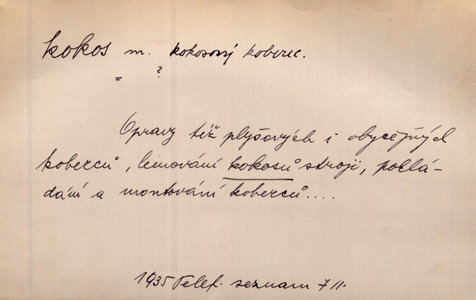 kokos m. kokosový koberec.
= ?
Opravy též plyšových i obyčejných
koberců, lemování kokosů stroji, poklá-
dání a montování koberců....
1935 Telef. seznam 7 II.